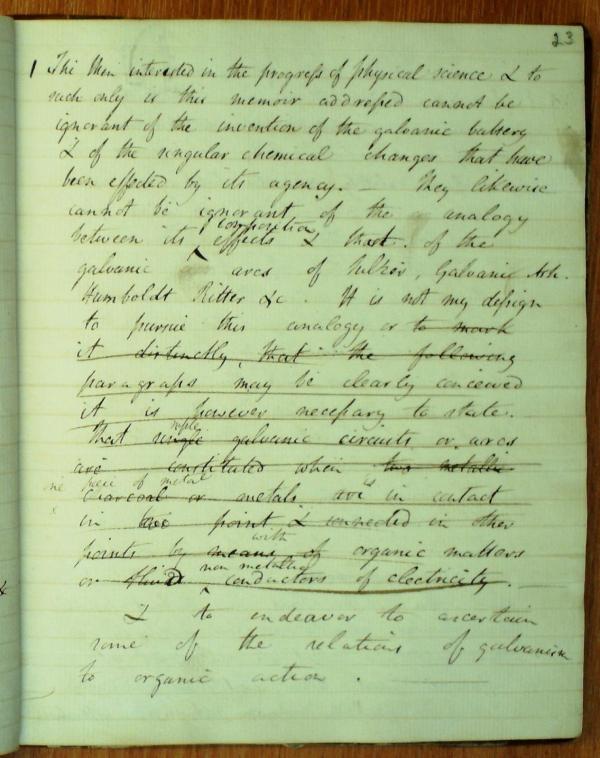 23
1 The Men interested in the progress of physical science & to
such only is this memoir addressed cannot be
ignorant of the invention of the galvanic battery
& of the singular chemical changes that have
been effected by its agency. — They likewise
cannot be ignorant of the analogy
composition
between its effects & that. of the
galvanic arcs of Sulzer, Galvani
Humboldt Ritter &c. It is not my design
to pursue this analogy or to mark
it distinctly, that the following
paragraphs may be clearly conceived
it is however necessary to state.
simple
that single galvanic circuits or arcs
are constituted when two metallic
one piece of metal
charcoal or metals are in contact
in two point & connected in other
with
points by means of organic matters
non metallic
or third conductors of electricity.
& to endeavor to ascertain
some of the relations of galvanism
to organic action.